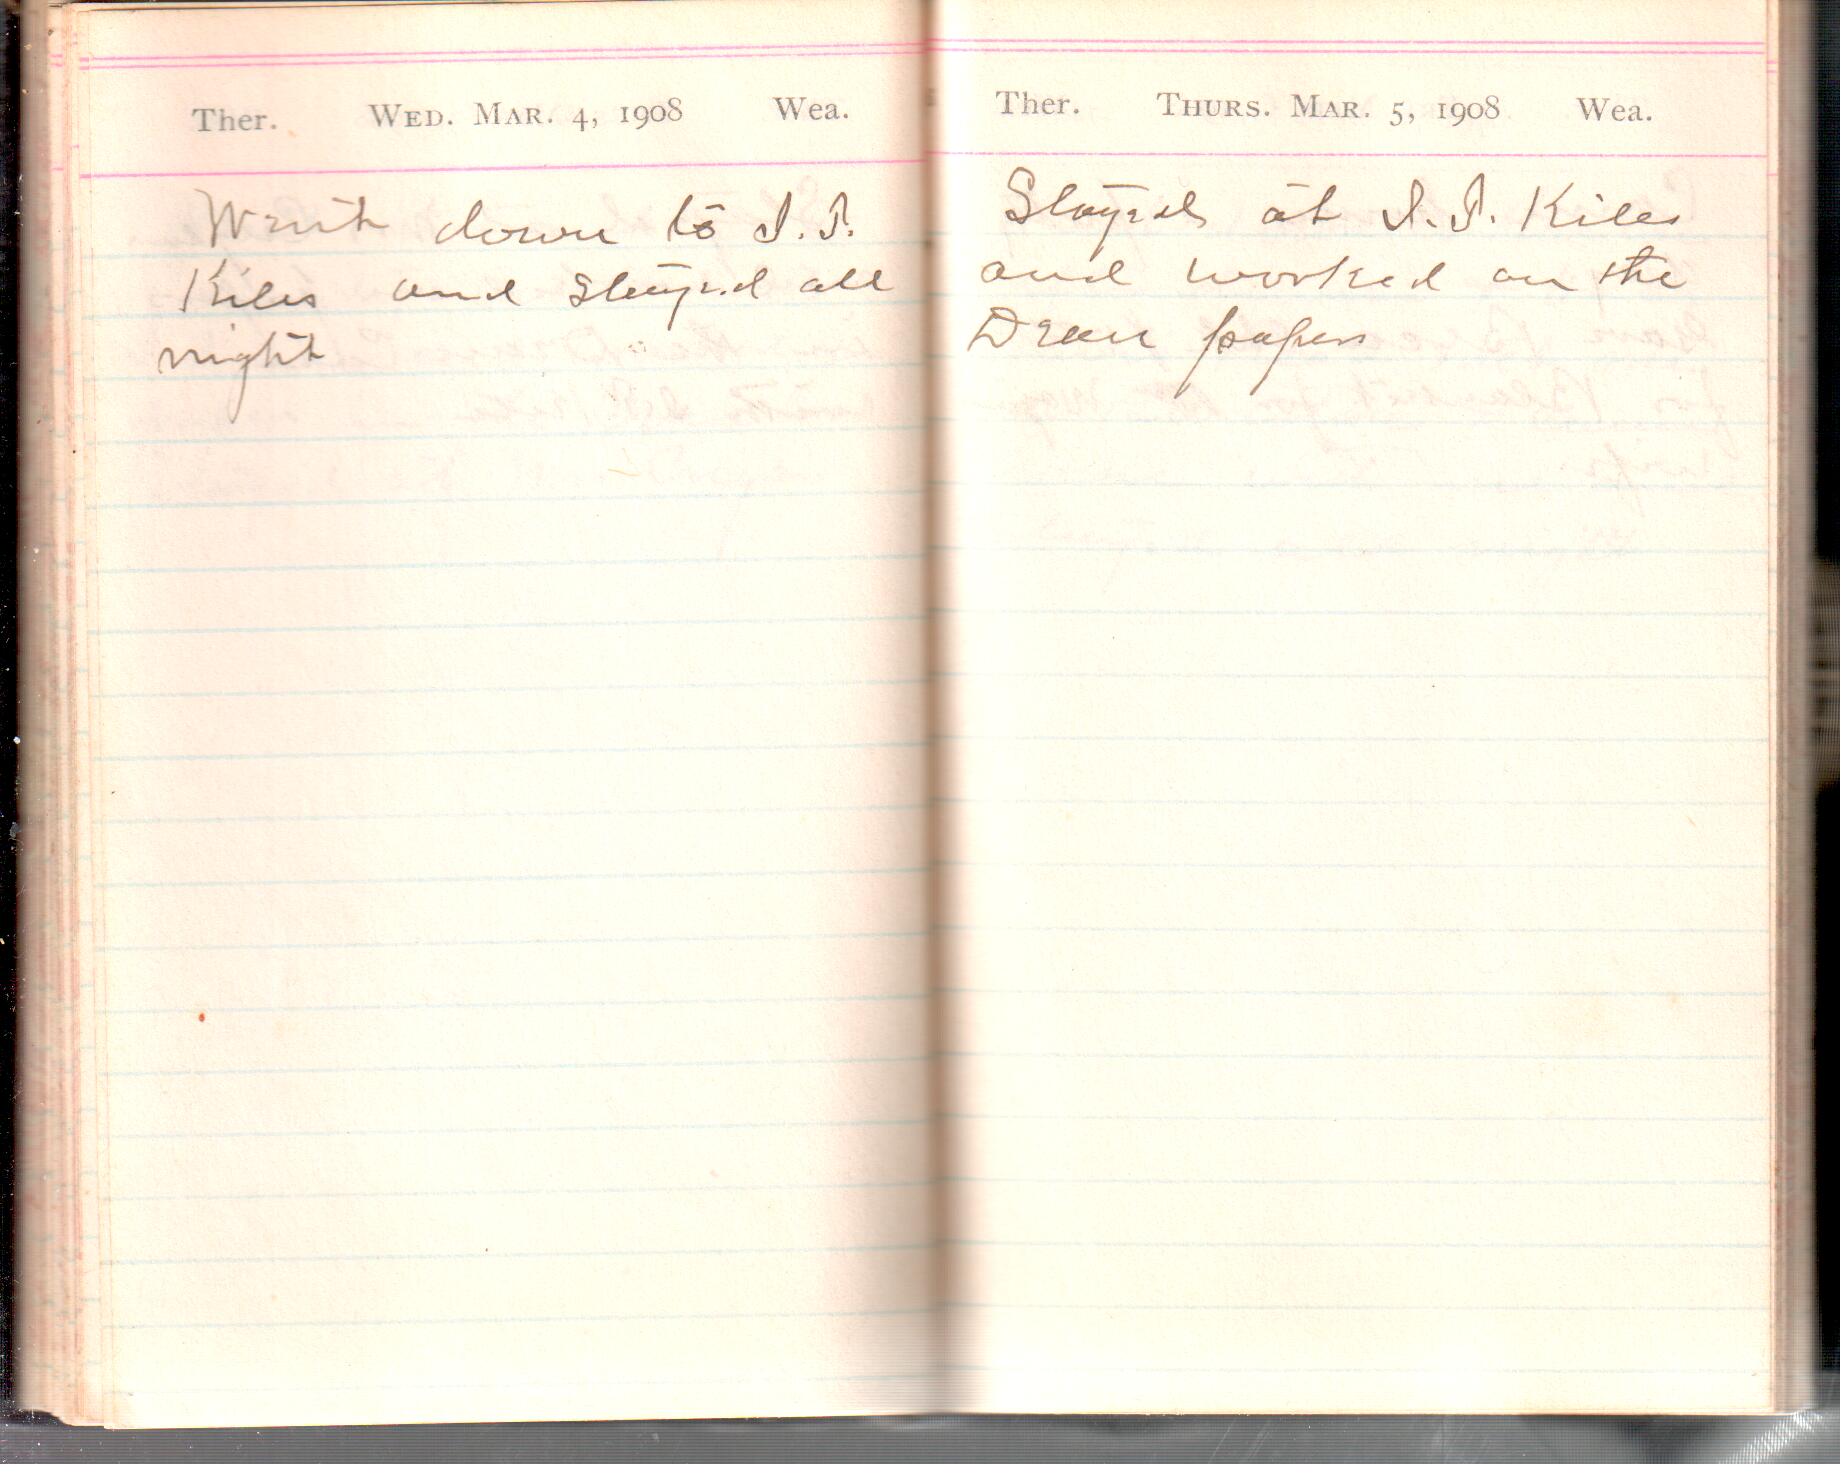 Ther. Wed. Mar. 4, 1908 Wea.
Went down to I. I.
Kiles and stayed all
night
Ther. Thurs. Mar. 5, 1908 Wea.
Stayed at I. I. Kiles
and worked on the
Dean papers